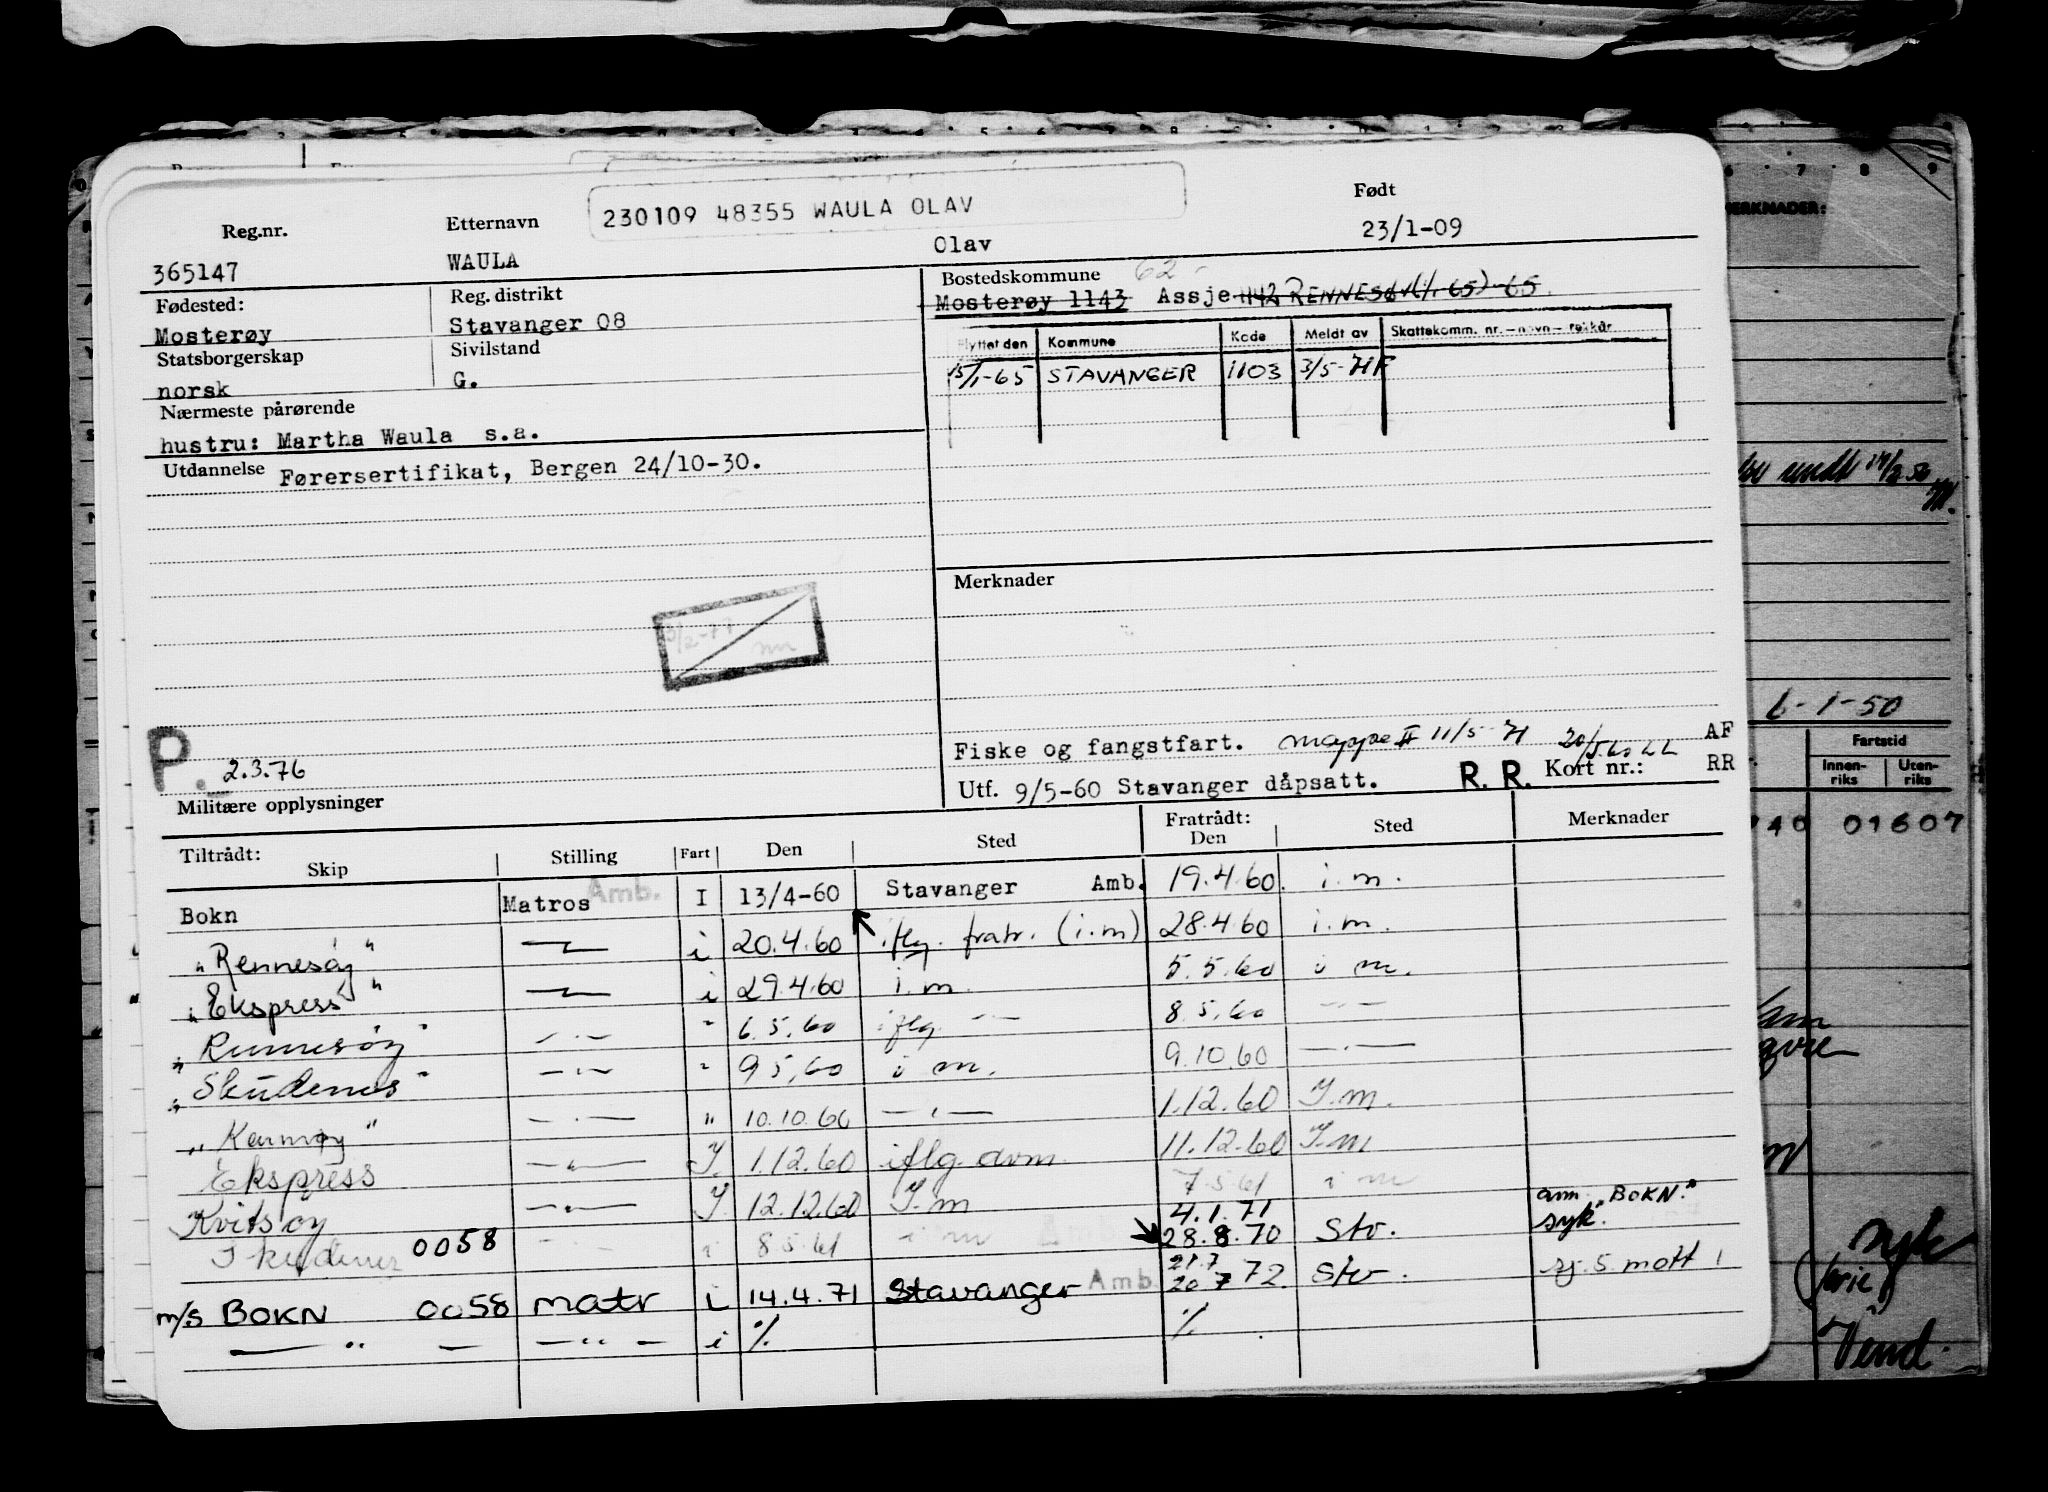 Født
230109 48355 WAULA OLAV
Reg.nr. Etternavn
365147 WAULA Olav 23/1-09
Fødested: Reg. distrikt Bostedskommune 62
Mosterøy Stavanger 08 Mosterøy 1143 Assje 1142 RENNESØY (1/1-65) 65
Statsborgerskap Sivilstand
norsk G.
Flyttet den Kommune Kode Meldt av Skattekomm. nr. – navn – rekkår
15/1-65 STAVANGER 1103 3/5-71 F
Nærmeste pårørende
hustru: Martha Waula s.a.
Utdannelse Førersertifikat, Bergen 24/10-30.
Merknader
P. 2.3.76
Fiske og fangstfart. mappe II 11/5-71 AF
Utf. 9/5-60 Stavanger dåpsatt. R. R. Kort nr.: RR
Militære opplysninger
Tiltrådt: Skip Stilling Fart Den Sted Fratrådt: Den Sted Merknader
Bokn Matros Amb. I 13/4-60 Stavanger Amb. 19.4.60. i.m.
"Rennesøy" —"— i 20.4.60 iflg. fratr. (i.m) 28.4.60 i.m.
"Ekspress" —"— i 29.4.60 i.m. 5.5.60 i m.
"Rennesøy" —"— " 6.5.60 iflg. —"— 8.5.60 —"—
"Skudenes" —"— " 9.5.60 i m. 9.10.60 —"—
"Karmøy" —"— " 10.10.60 —"— 1.12.60 I.m.
Ekspress —"— I. 1.12.60 iflg. avm. 11.12.60 I.m
Kvitsøy —"— I. 12.12.60 I.m 7.5.61 i m
Skudenes 0058 —"— i 8.5.61 i m Amb. 4.1.71 28.8.70 Stv. anm. "BOKN." syk.
m/s BOKN 0058 matr i 14.4.71 Stavanger Amb. 21.7 20.7 72 Stv.
—"— —"— i %. %.
MERKNADER:
6-1-50
Fartstid
Innenriks Utenriks
01607
syk